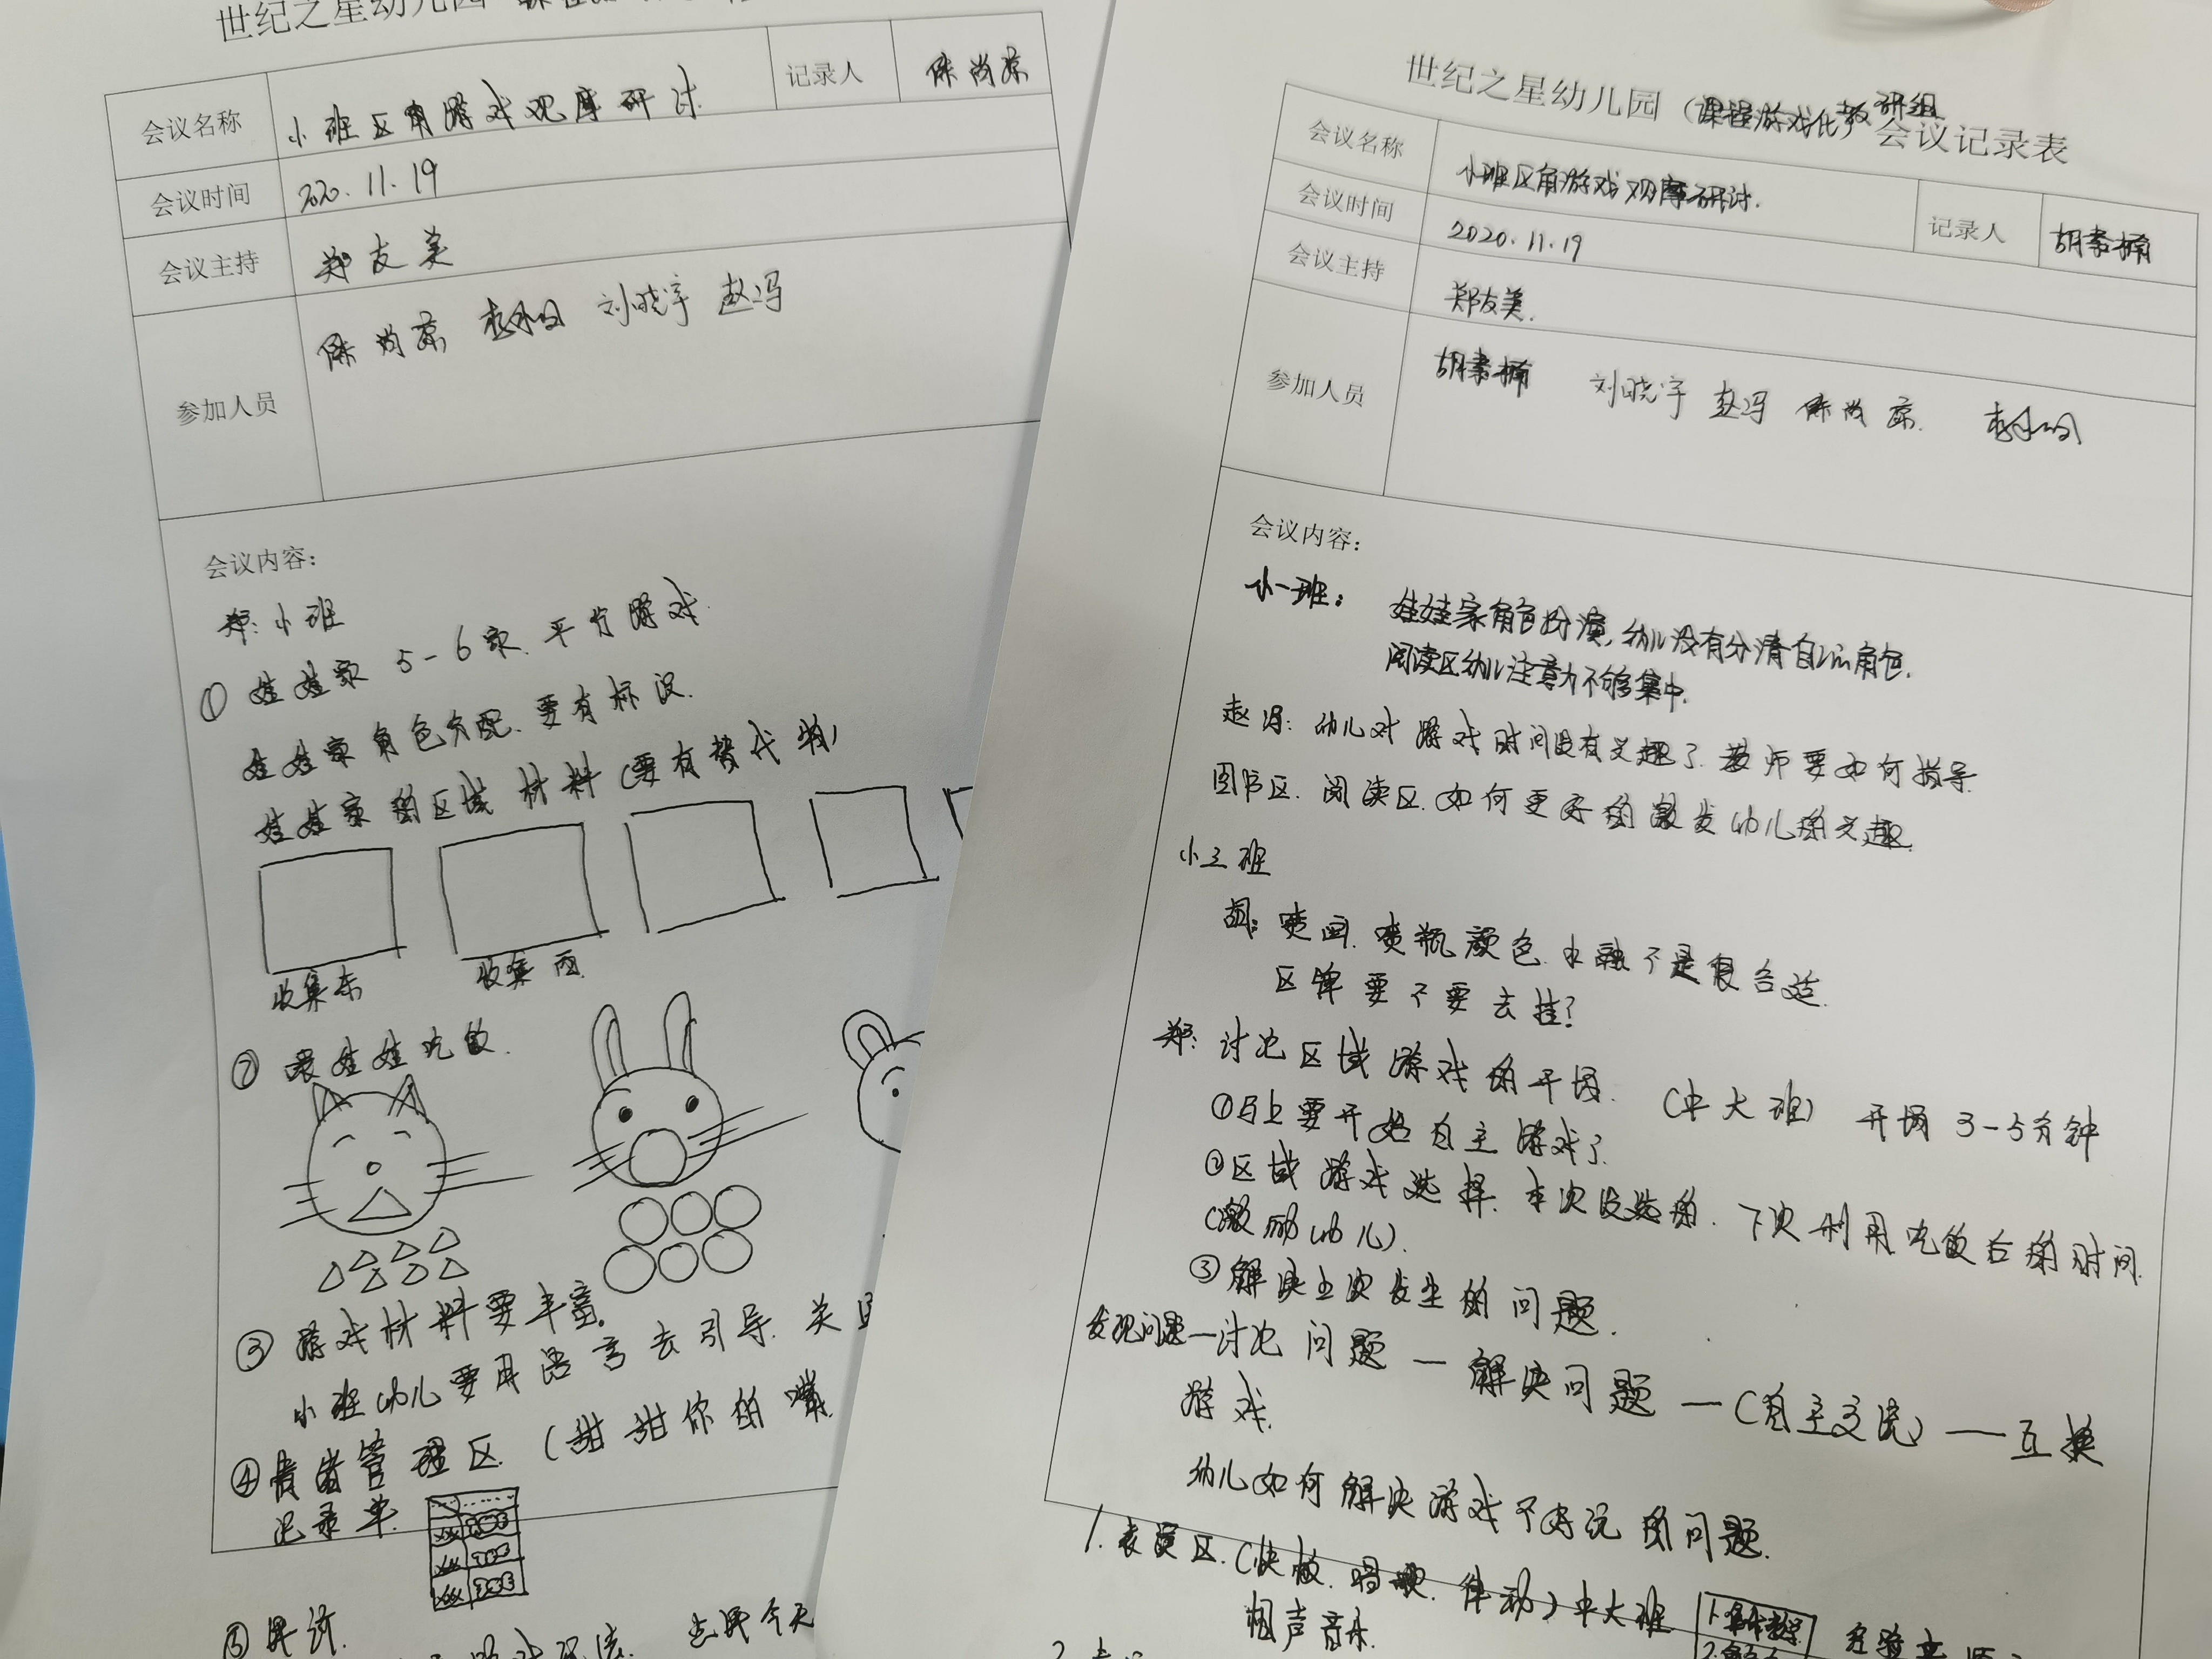 世纪之星幼儿园
会议名称
小班区角游戏观摩研讨
记录人
陈尚京
会议时间
2020.11.19
会议主持
郑友美
参加人员
陈尚京 刘晓宇 赵冯
会议内容：
郑：小班
① 娃娃家 5-6家. 平行游戏.
娃娃家角色分配. 要有标识.
娃娃家的区域材料（要有替代物）
收集东
收集西
② 喂娃娃吃饭.
③ 游戏材料要丰富.
小班幼儿要用语言去引导. 关
④ 骨皆管理区.（甜甜你的嘴
记录单.
⑤ 早
去年今天
世纪之星幼儿园（课程游戏化）教研组会议记录表
会议名称
小班区角游戏观摩研讨.
记录人
会议时间
2020.11.19
会议主持
郑友美.
参加人员
刘晓宇 赵冯 陈尚京.
会议内容：
小一班：娃娃家角色扮演, 幼儿没有分清自己的角色.
阅读区幼儿注意力不够集中.
赵冯：幼儿对游戏时间没有兴趣了. 教师要如何指导.
图书区. 阅读区. 如何更好的激发幼儿的兴趣.
小三班
胡：喷画. 喷瓶颜色. 水融不是很合适.
区牌要不要去挂？
郑：讨论区域游戏的开场. （中大班） 开场3-5分钟
①马上要开始自主游戏了.
②区域游戏选择. 本次没选的. 下次利用吃饭后的时间.
（激励幼儿）.
③解决上次发生的问题.
发现问题—讨论问题—解决问题—（自主交流）—互换
游戏.
幼儿如何解决游戏不好玩的问题.
1. 表演区.（快板. 唱歌. 律动）中大班
相声 音乐.